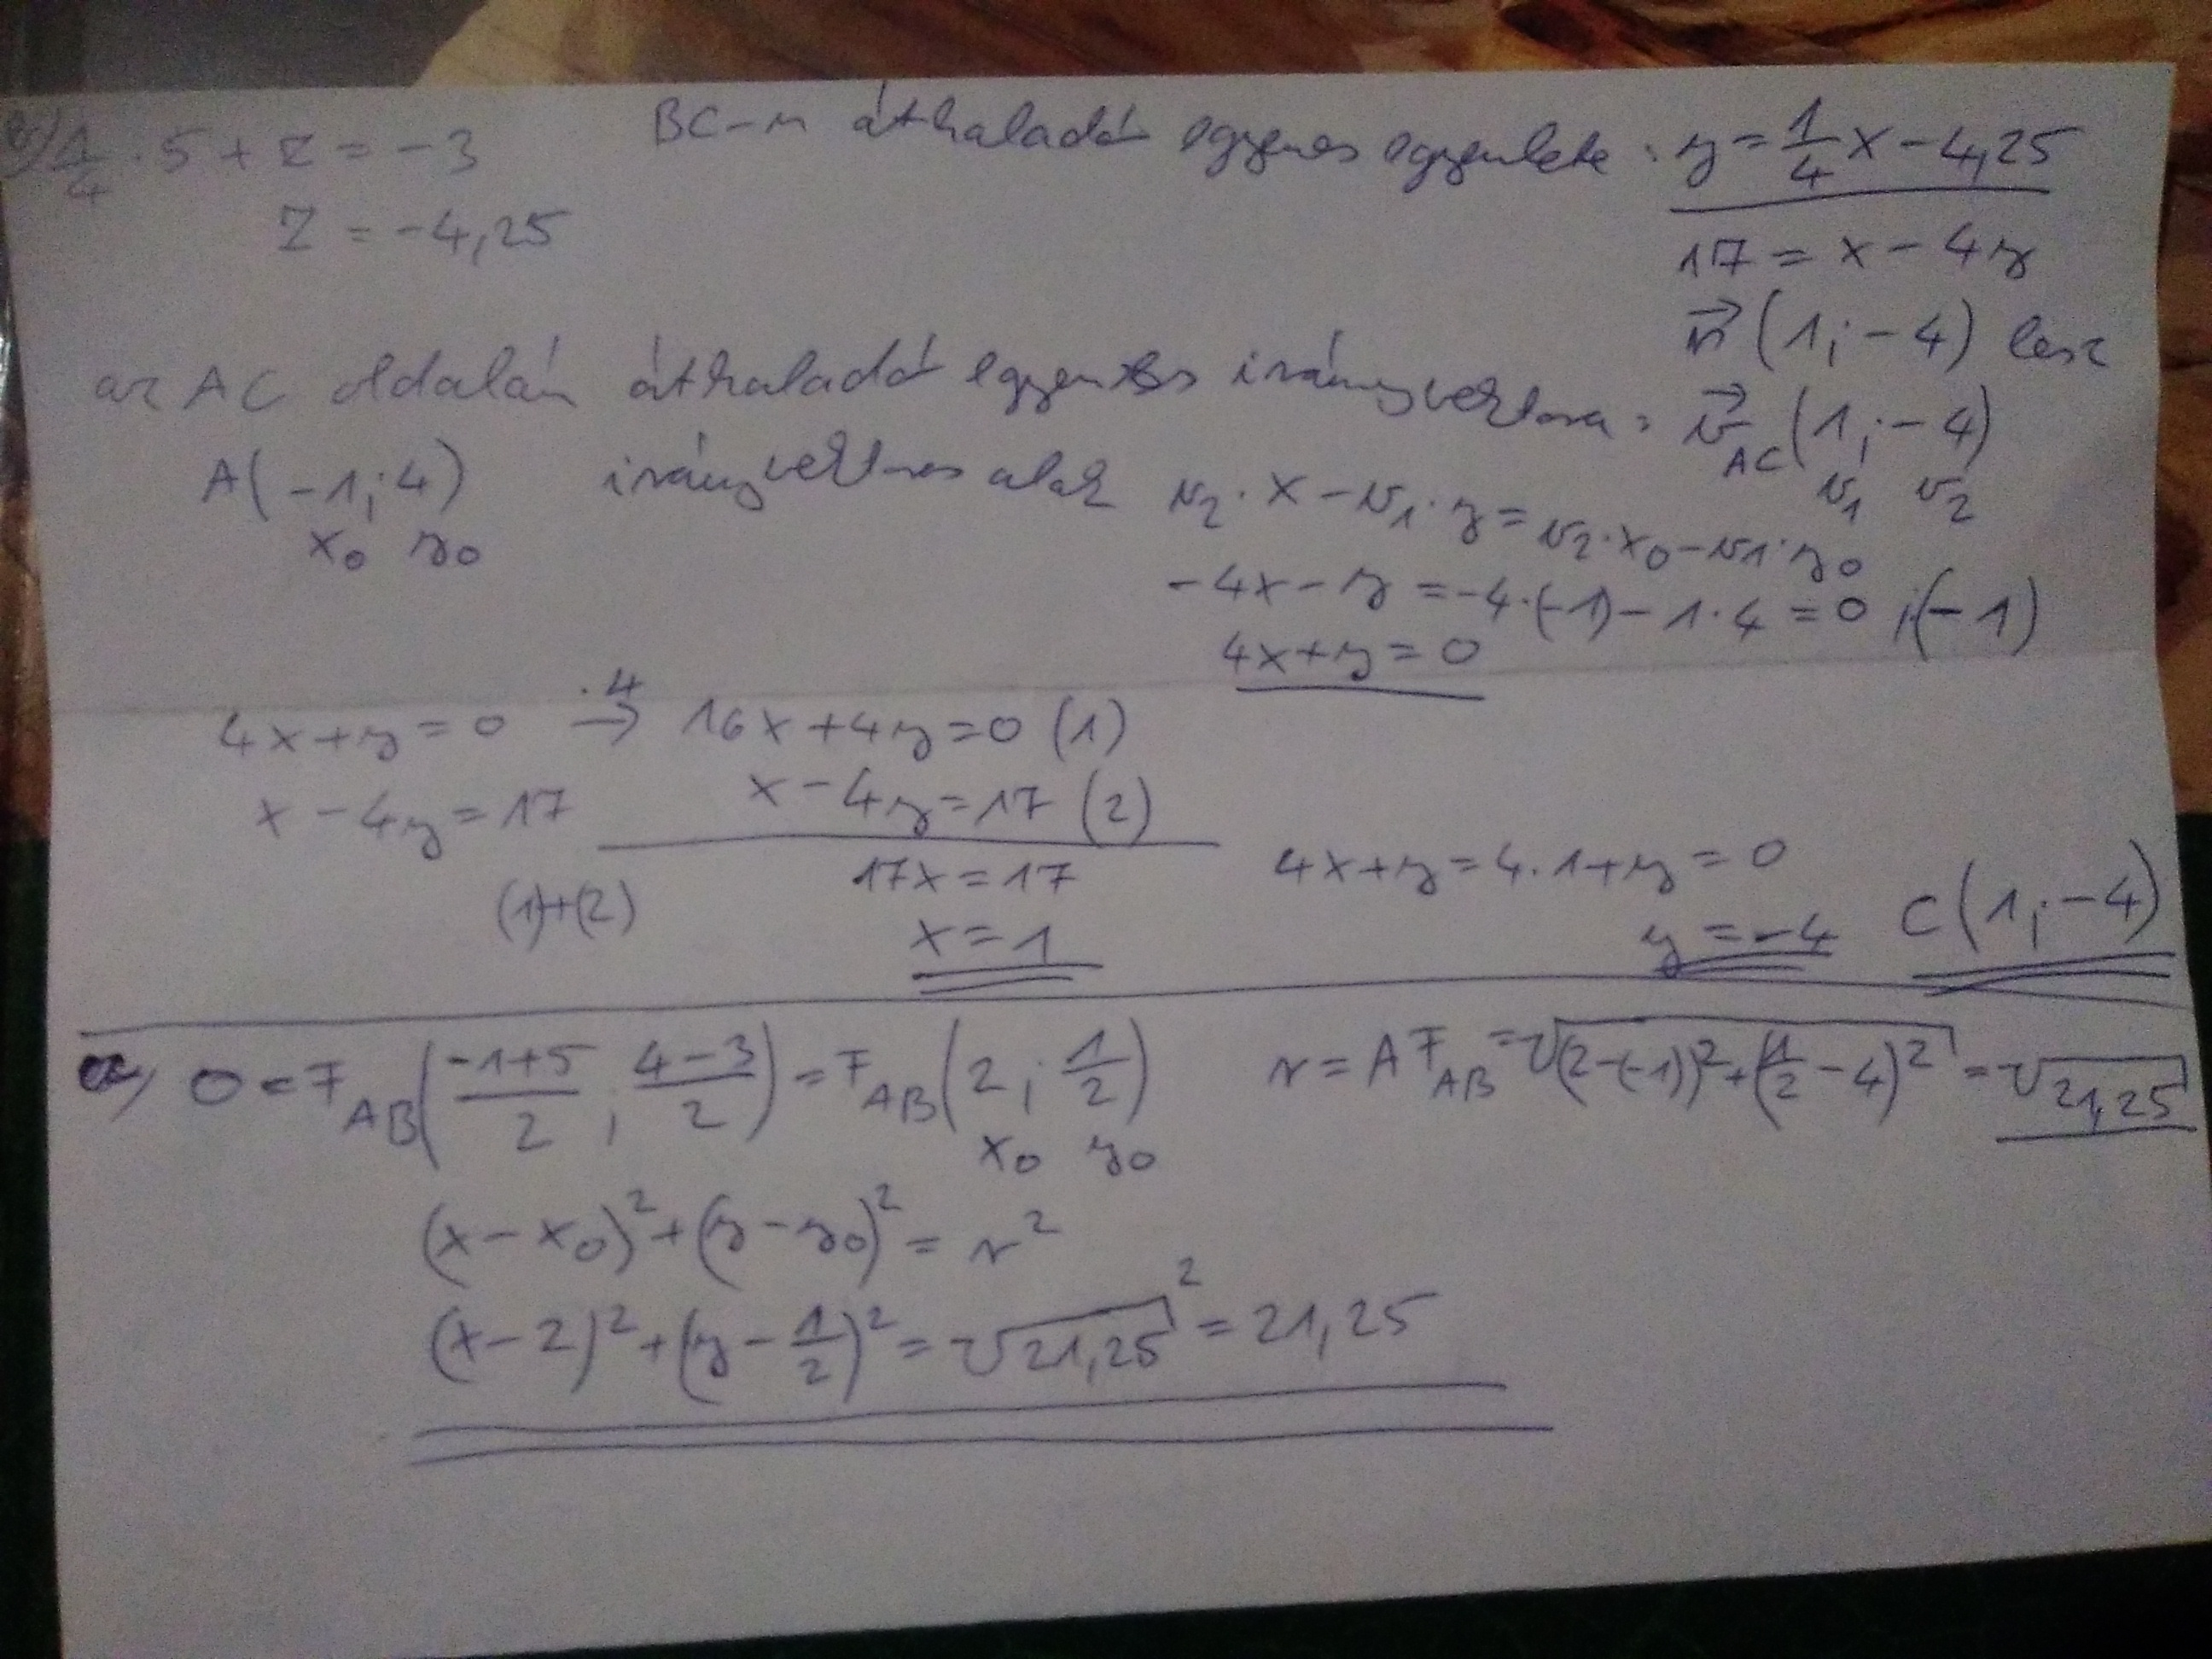 b) 1/4 · 5 + z = -3 BC-n áthaladó egyenes egyenlete: y = 1/4 x - 4,25
z = -4,25
17 = x - 4y
n⃗ (1; -4) lesz
az AC oldalán áthaladó egyenes irányvektora: v⃗AC (1; -4)
v1 v2
A(-1; 4) irányvektoros alak v2 · x - v1 · y = v2 · x0 - v1 · y0
x0 y0
-4x - y = -4·(-1) - 1·4 = 0 /·(-1)
4x + y = 0
4x + y = 0 ·4→ 16x + 4y = 0 (1)
x - 4y = 17 x - 4y = 17 (2)
(1)+(2) 17x = 17 4x + y = 4·1 + y = 0
x = 1 y = -4 C(1; -4)
c) O = FAB((-1+5)/2 ; (4-3)/2) = FAB(2; 1/2) r = AFAB = √((2-(-1))² + (1/2 - 4)²) = √21,25
x0 y0
(x - x0)² + (y - y0)² = r²
(x - 2)² + (y - 1/2)² = √21,25² = 21,25